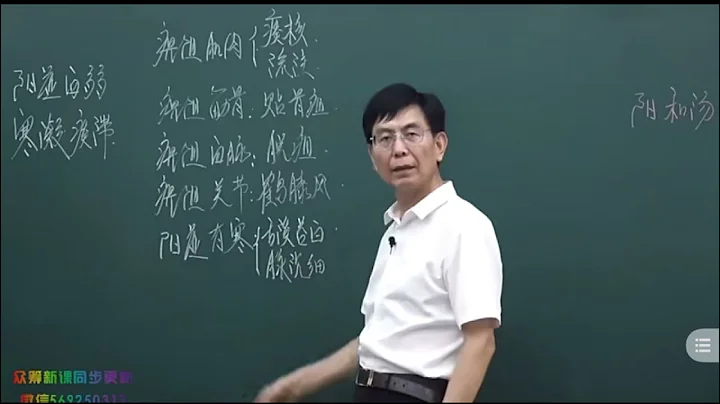 阳虚血弱
寒凝痰滞
痹阻肌肉
痰核
流注
痹阻筋骨:贴骨疽
痹阻血脉:脱疽
痹阻关节:鹤膝风
阳虚有寒
舌淡苔白
脉沉细
阳和汤
众筹新课同步更新